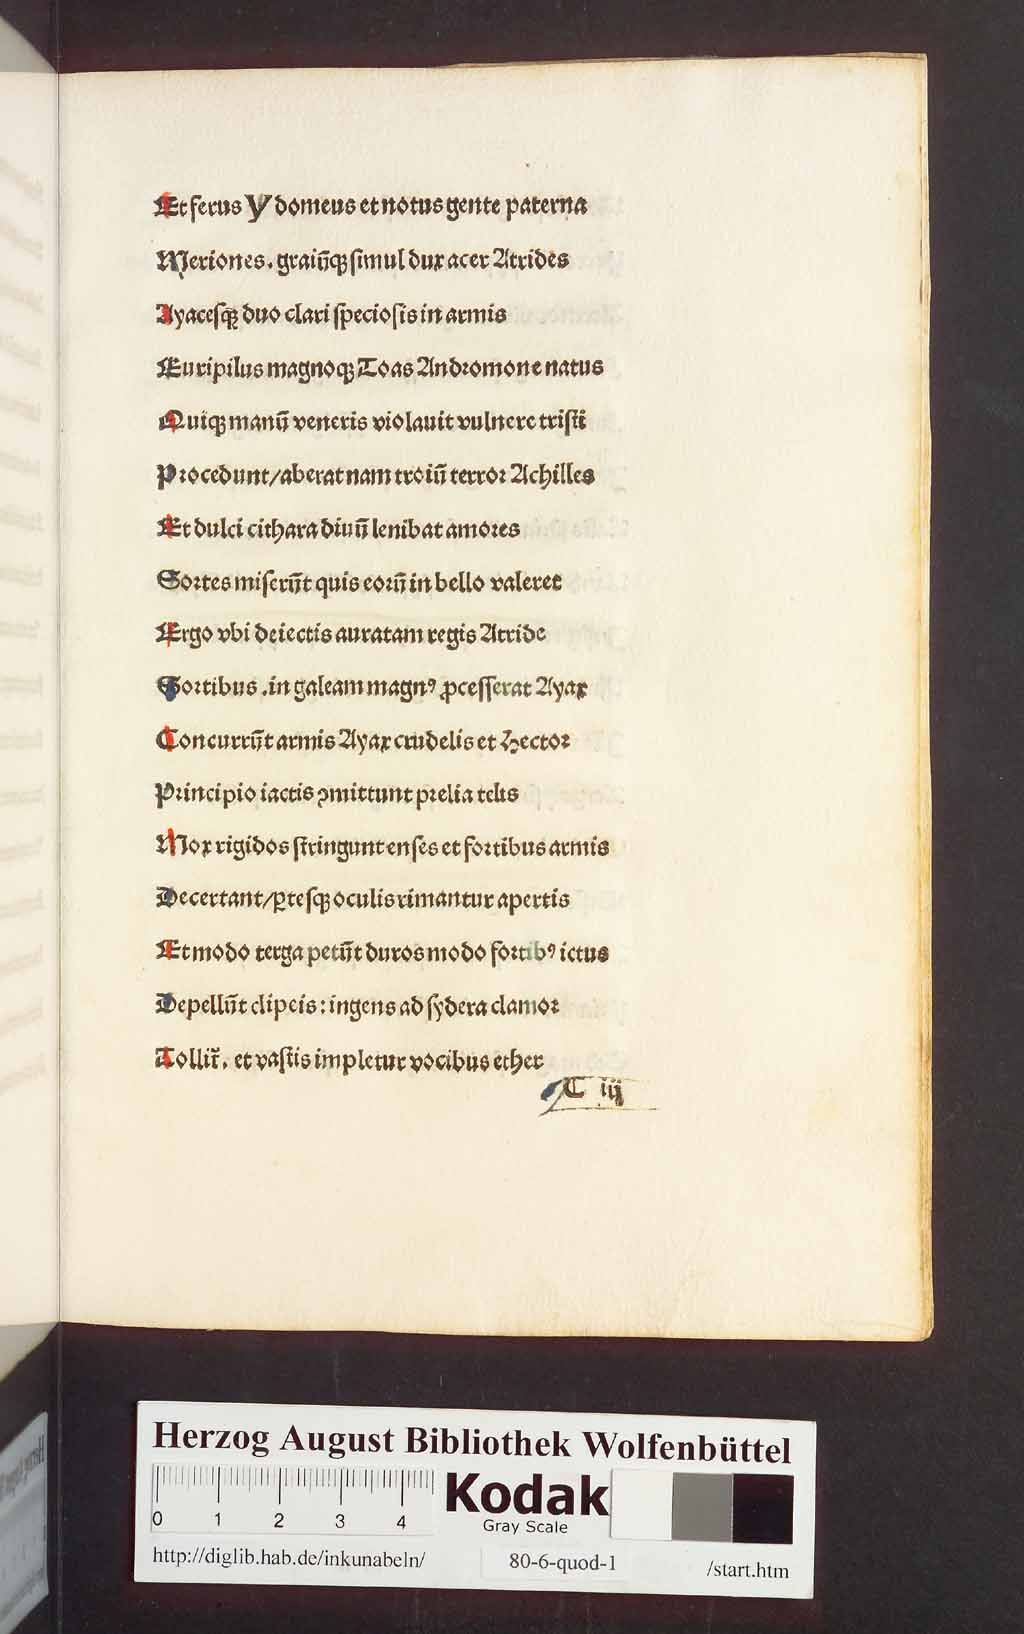 Et ferus Ydomeus et notus gente paterna
Meriones. graiūqꝫ simul dux acer Atrides
Ayacesqꝫ duo clari speciosis in armis
Euripilus magnoqꝫ Toas Andromone natus
Quiqꝫ manū veneris violauit vulnere tristi
Procedunt/aberat nam troiū terror Achilles
Et dulci cithara diuū lenibat amores
Sortes miserūt quis eorū in bello valeret
Ergo vbi deiectis auratam regis Atride
Sortibus .in galeam magnꝰ ꝓcesserat Ayax
Concurrūt armis Ayax crudelis et Hector
Principio iactis ꝯmittunt prelia telis
Mox rigidos stringunt enses et fortibus armis
Decertant/ꝑtesqꝫ oculis rimantur apertis
Et modo terga petūt duros modo fortibꝰ ictus
Depellūt clipeis: ingens ad sydera clamor
Tollir̃. et vastis impletur vocibus ether
C iij
Herzog August Bibliothek Wolfenbüttel
0 1 2 3 4
Kodak
Gray Scale
http://diglib.hab.de/inkunabeln/ 80-6-quod-1 /start.htm